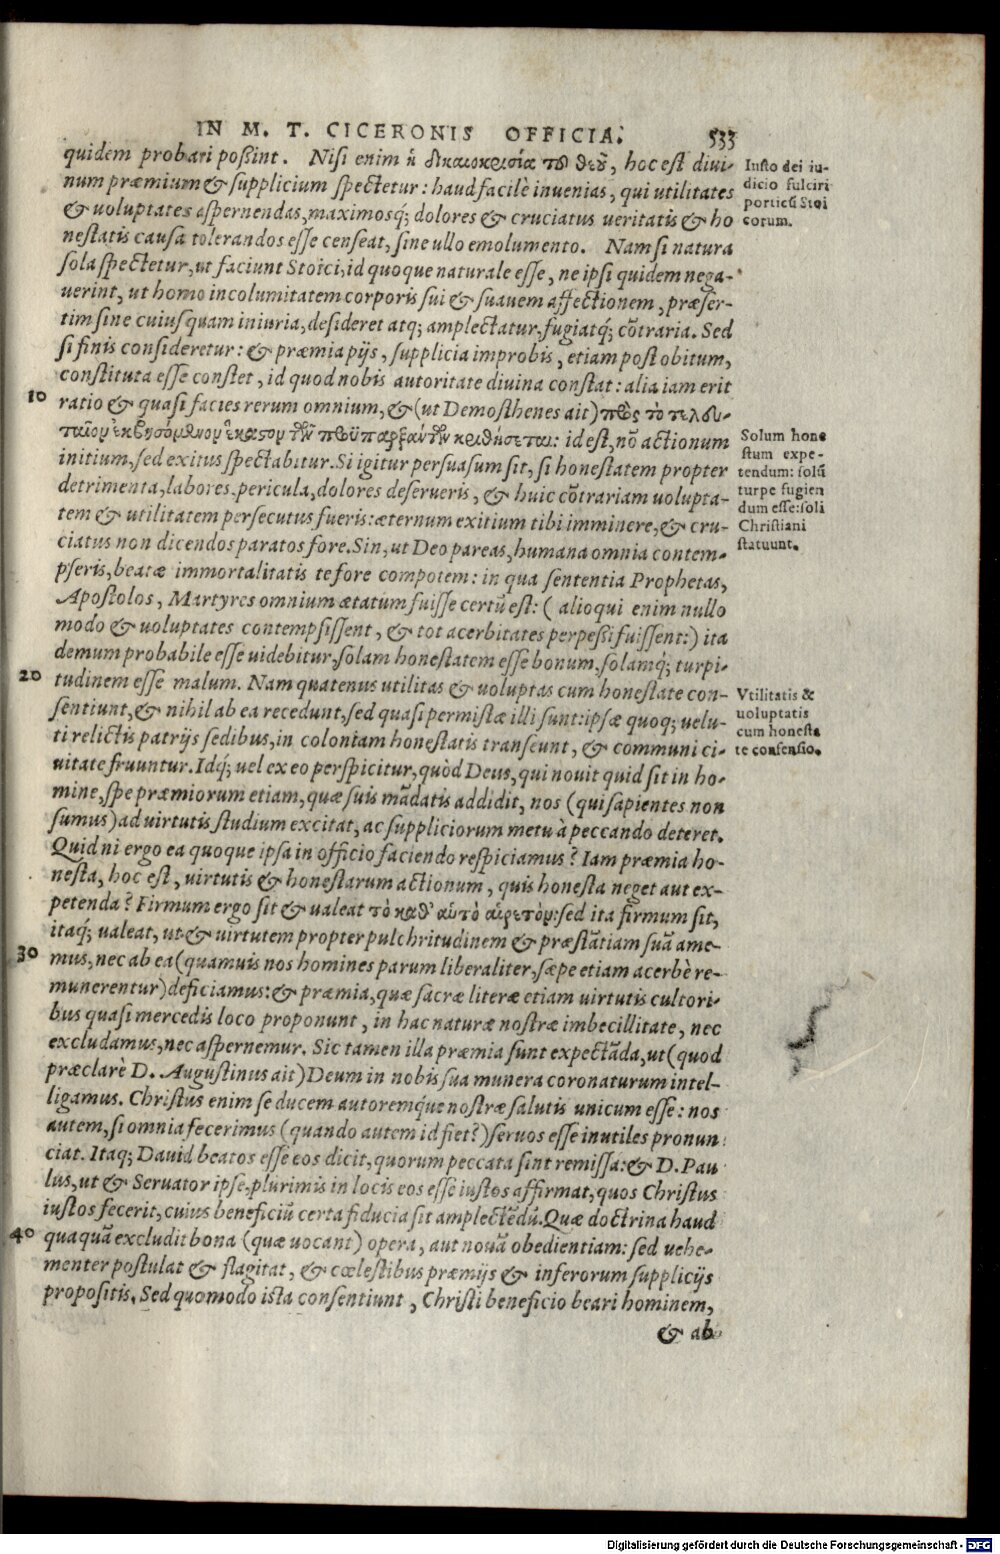 IN M. T. CICERONIS OFFICIA. 533
quidem probari poßint. Nisi enim ἡ δικαιοκρισία τοῦ θεοῦ, hoc est diui-
num præmium & supplicium spectetur: haud facilè inuenias, qui utilitates
& uoluptates aspernendas, maximosq́; dolores & cruciatus ueritatis & ho
nestatis causa tolerandos esse censeat, sine ullo emolumento. Nam si natura
sola spectetur, ut faciunt Stoici, id quoque naturale esse, ne ipsi quidem nega-
uerint, ut homo incolumitatem corporis sui & suauem affectionem, præser-
tim sine cuiusquam iniuria, desideret atq; amplectatur, fugiatq́; cōtraria. Sed
si finis consideretur: & præmia pijs, supplicia improbis, etiam post obitum,
constituta esse constet, id quod nobis autoritate diuina constat: alia iam erit
10 ratio & quasi facies rerum omnium, & (ut Demosthenes ait) πρὸς τὸ τελευ-
ταῖον ἐκβησόμενον ἕκαστον τῶν προϋπαρξάντων κριθήσεται: id est, nō actionum
initium, sed exitus spectabitur. Si igitur persuasum sit, si honestatem propter
detrimenta, labores, pericula, dolores deserueris, & huic cōtrariam uolupta-
tem & utilitatem persecutus fueris: æternum exitium tibi imminere, & cru-
ciatus non dicendos paratos fore. Sin, ut Deo pareas, humana omnia contem-
pseris, beatæ immortalitatis te fore compotem: in qua sententia Prophetas,
Apostolos, Martyres omnium ætatum fuisse certū est: ( alioqui enim nullo
modo & uoluptates contempsissent, & tot acerbitates perpeßi fuissent:) ita
demum probabile esse uidebitur, solam honestatem esse bonum, solamq́; turpi-
20 tudinem esse malum. Nam quatenus utilitas & uoluptas cum honestate con-
sentiunt, & nihil ab ea recedunt, sed quasi permistæ illi sunt: ipsæ quoq; uelu-
ti relictis patrijs sedibus, in coloniam honestatis transeunt, & communi ci-
uitate fruuntur. Idq; uel ex eo perspicitur, quòd Deus, qui nouit quid sit in ho-
mine, spe præmiorum etiam, quæ suis mādatis addidit, nos (qui sapientes non
sumus) ad uirtutis studium excitat, ac suppliciorum metu à peccando deteret.
Quid ni ergo ea quoque ipsa in officio faciendo respiciamus? Iam præmia ho-
nesta, hoc est, uirtutis & honestarum actionum, quis honesta neget aut ex-
petenda? Firmum ergo sit & ualeat τὸ καθ' αὑτὸ αἱρετὸν: sed ita firmum sit,
itaq́; ualeat, ut & uirtutem propter pulchritudinem & præstātiam suā ame-
30 mus, nec ab ea (quamuis nos homines parum liberaliter, sæpe etiam acerbè re-
munerentur) deficiamus: & præmia, quæ sacræ literæ etiam uirtutis cultori-
bus quasi mercedis loco proponunt, in hac naturæ nostræ imbecillitate, nec
excludamus, nec aspernemur. Sic tamen illa præmia sunt expectāda, ut (quod
præclarè D. Augustinus ait) Deum in nobis sua munera coronaturum intel-
ligamus. Christus enim se ducem autoremq́ue nostræ salutis unicum esse: nos
autem, si omnia fecerimus (quando autem id fiet?) seruos esse inutiles pronun
ciat. Itaq; Dauid beatos esse eos dicit, quorum peccata sint remissa: & D. Pau
lus, ut & Seruator ipse, plurimis in locis eos esse iustos affirmat, quos Christus
iustos fecerit, cuius beneficiū certa fiducia sit amplectēdū. Quæ doctrina haud
40 quaquā excludit bona (quæ uocant) opera, aut nouā obedientiam: sed uehe-
menter postulat & flagitat, & cœlestibus præmijs & inferorum supplicijs
propositis. Sed quomodo ista consentiunt, Christi beneficio beari hominem,
& ab
Iusto dei iu-
dicio fulciri
porticū Stoi
corum.
Solum hone
stum expe-
tendum: solū
turpe fugien
dum esse: soli
Christiani
statuunt.
Vtilitatis &
uoluptatis
cum honesta
te consensio.
Digitalisierung gefördert durch die Deutsche Forschungsgemeinschaft - DFG